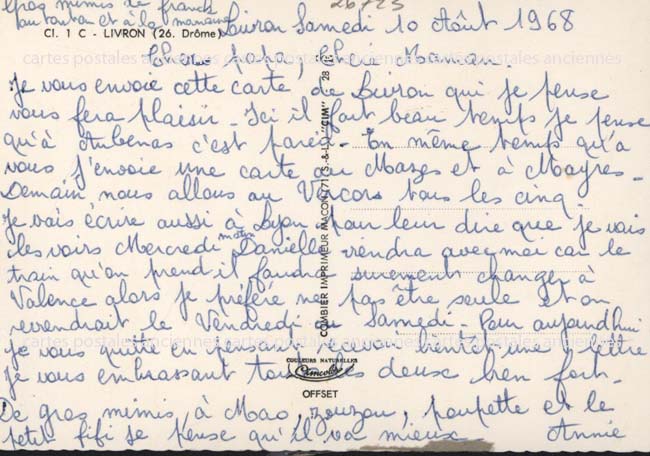 gros mimis de franck
tonton et à la maman
26725
Livron Samedi 10 Août 1968
Cl. 1 C - LIVRON (26. Drôme)
Cher papa, Chère Maman.
Je vous envoie cette carte de Livron qui je pense
vous fera plaisir - Ici il fait beau temps je pense
qu'à Aubenas c'est pareil - En même temps qu'à
vous j'envoie une carte au Mazes et à Mayres -
Demain nous allons au Vercors tous les cinq.
Je vais écrire aussi à Lyon pour leur dire que je vais
les voirs Mercredi matin Danielle viendra avec moi car le
train qu'on prend il faudra surement changer à
Valence alors je préfère ne pas être seule Et on
reviendrait le Vendredi ou Samedi. Pour aujourdhui
je vous quitte en pensant recevoir bientôt une lettre
je vous embrassant tous les deux bien fort -
De gros mimis à Mao, Zouzou, poupette et le
petit fifi je pense qu'il va mieux Annie
COMBIER IMPRIMEUR MACON (71) (S.-&-L.) "CIM"
COULEURS NATURELLES
OFFSET
cartes postales anciennes